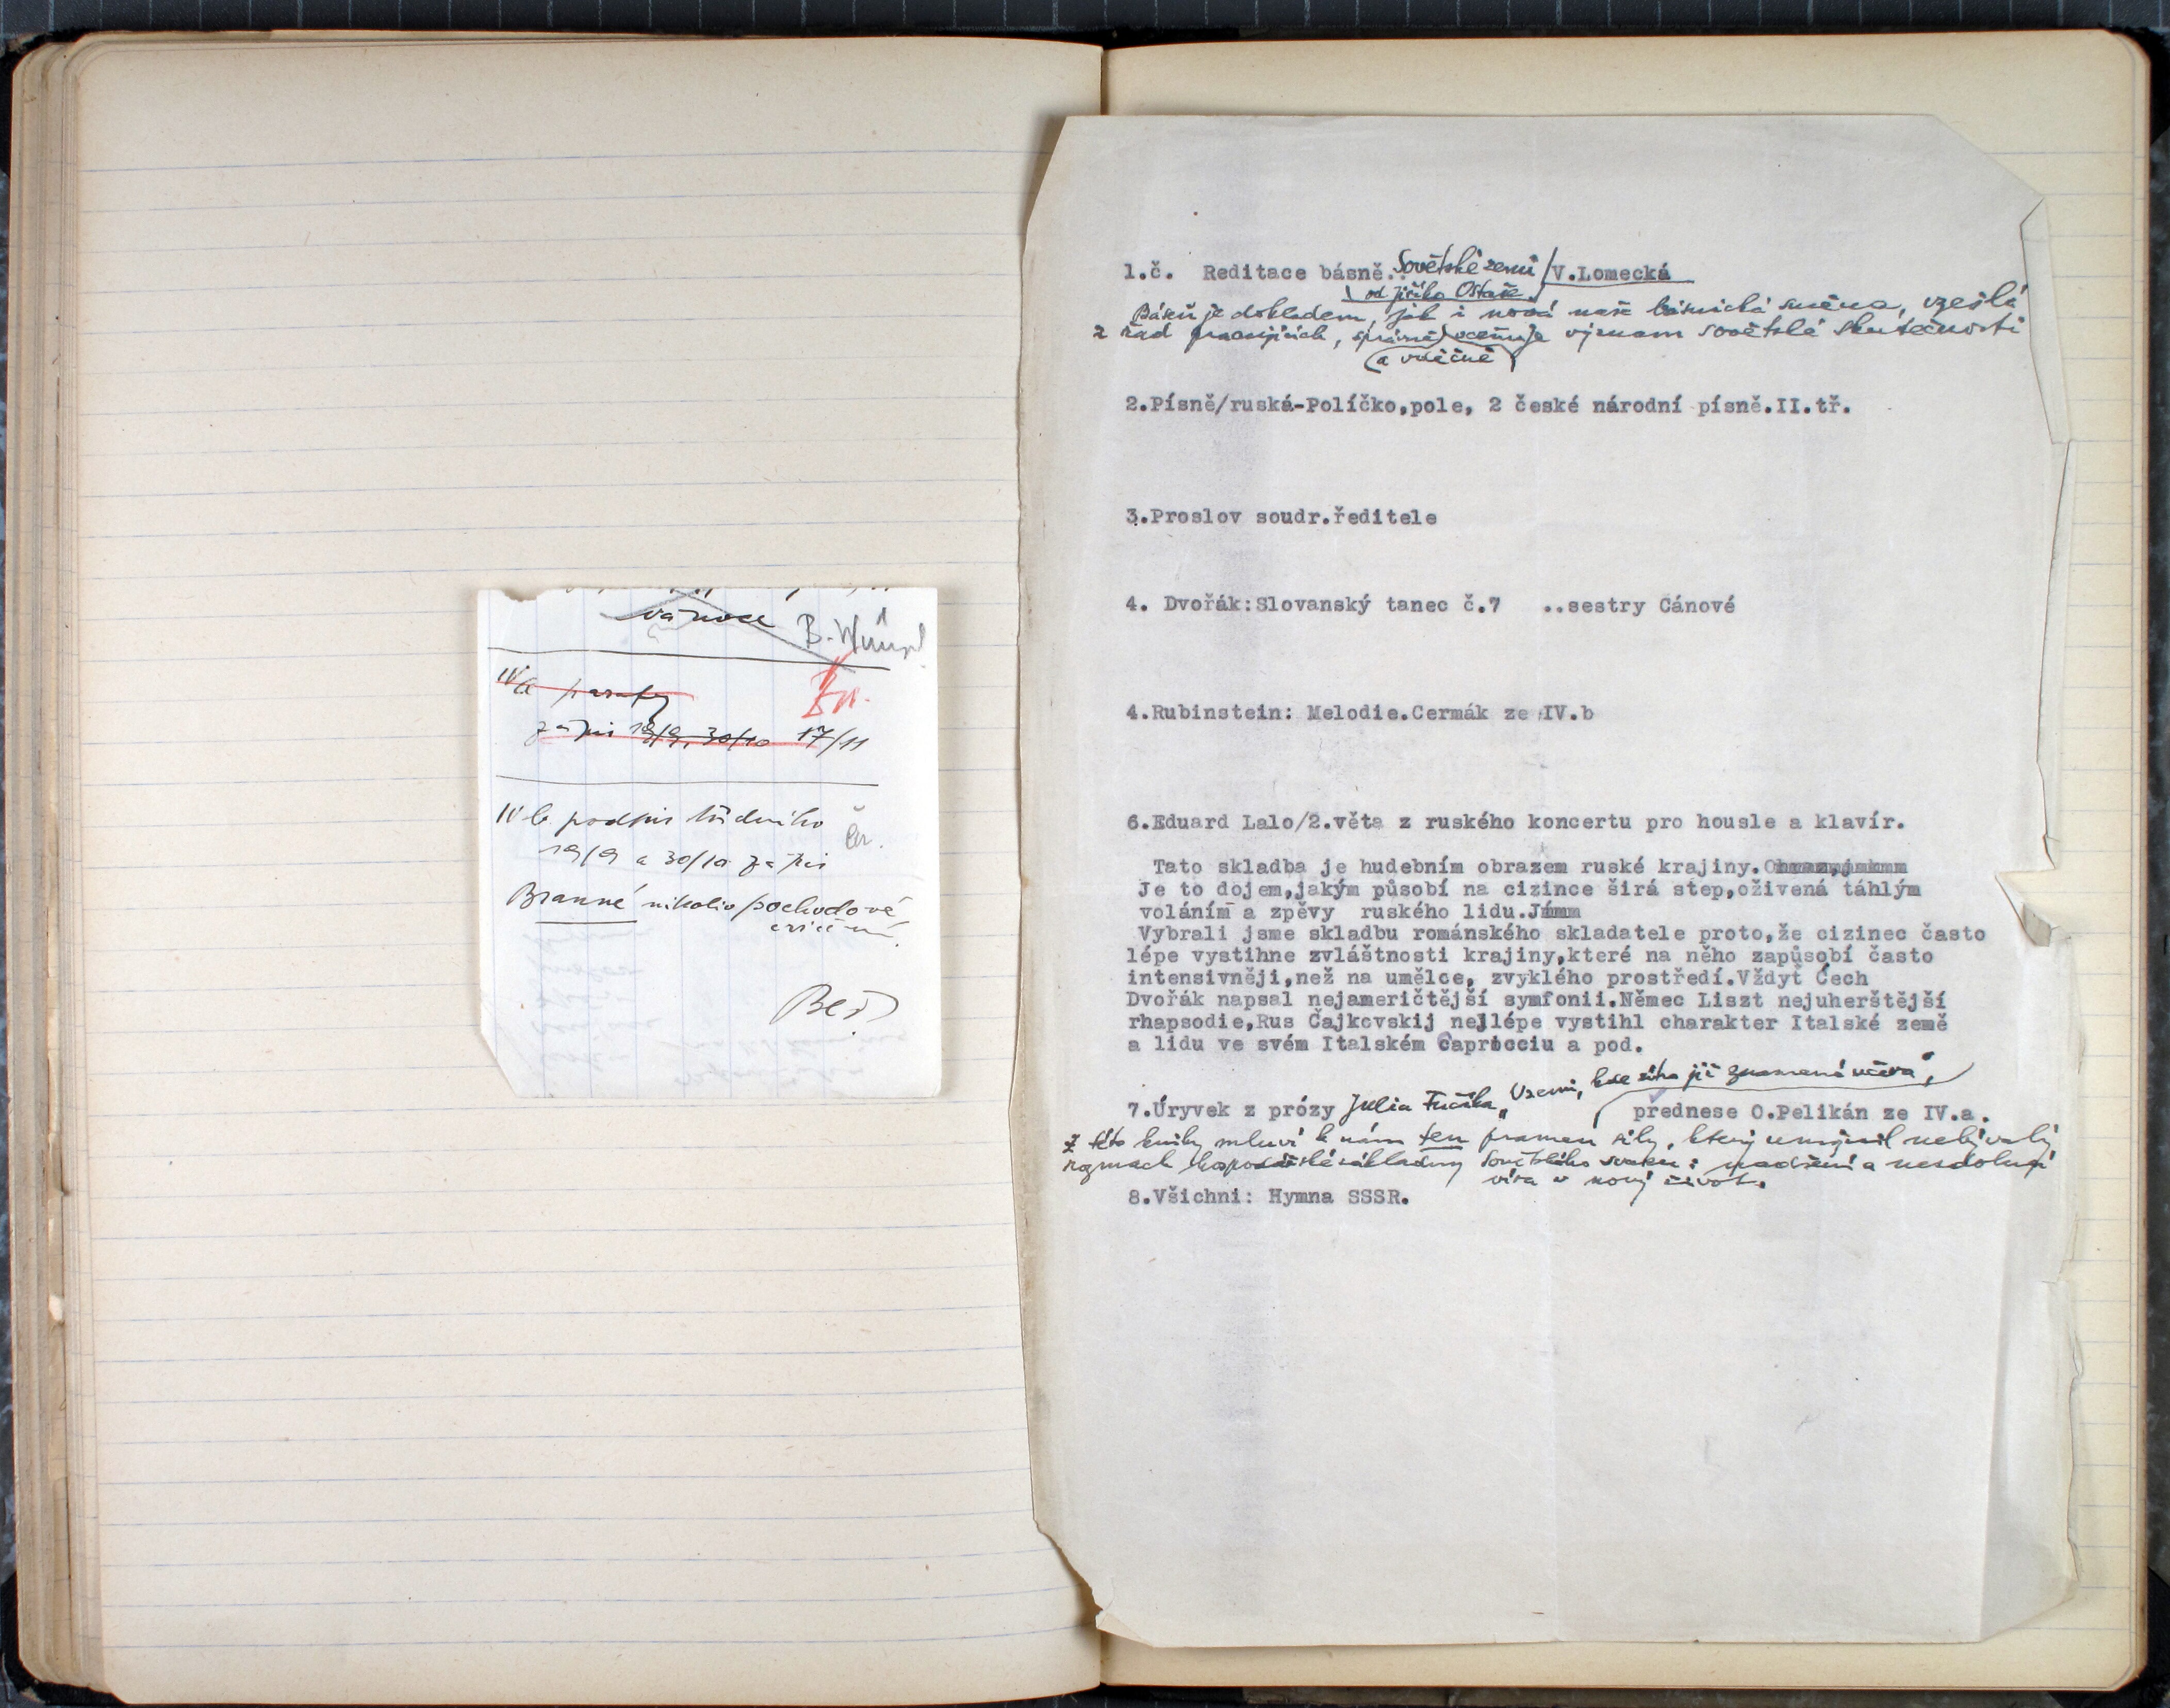 vánoce
B. Wün
IVa parafy
Br.
zápis 19/9, 30/10 17/11
IV b podpis třídního
Čr.
19/9 a 30/10 zápis
Branné nikoliv pochodové
cvičení.
1.č. Reditace básně. Sovětské zemi / V.Lomecká
od Jiřího Ostaše
Báseň je dokladem, jak i nová naše básnická směna, vzešlá
z řad pracujících, správně oceňuje význam sovětské skutečnosti
a vděčně
2.Písně/ruská-Políčko,pole, 2 české národní písně.II.tř.
3.Proslov soudr.ředitele
4. Dvořák:Slovanský tanec č.7 ..sestry Cánové
4.Rubinstein: Melodie.Cermák ze IV.b
6.Eduard Lalo/2.věta z ruského koncertu pro housle a klavír.
Tato skladba je hudebním obrazem ruské krajiny.
Je to dojem,jakým působí na cizince širá step,oživená táhlým
voláním a zpěvy ruského lidu.
Vybrali jsme skladbu románského skladatele proto,že cizinec často
lépe vystihne zvláštnosti krajiny,které na něho zapůsobí často
intensivněji,než na umělce, zvyklého prostředí.Vždyť Čech
Dvořák napsal nejameričtější symfonii.Němec Liszt nejuherštější
rhapsodie,Rus Čajkovskij nejlépe vystihl charakter Italské země
a lidu ve svém Italském Capricciu a pod.
7.Úryvek z prózy Julia Fučíka „V zemi, kde zítra již znamená včera“,
prednese O.Pelikán ze IV.a.
Z této knihy mluví k nám ten pramen síly, který umožnil nebývalý
rozmach hospodářské základny Sovětského svazu: nadšení a nezdolná
víra v nový život.
8.Všichni: Hymna SSSR.